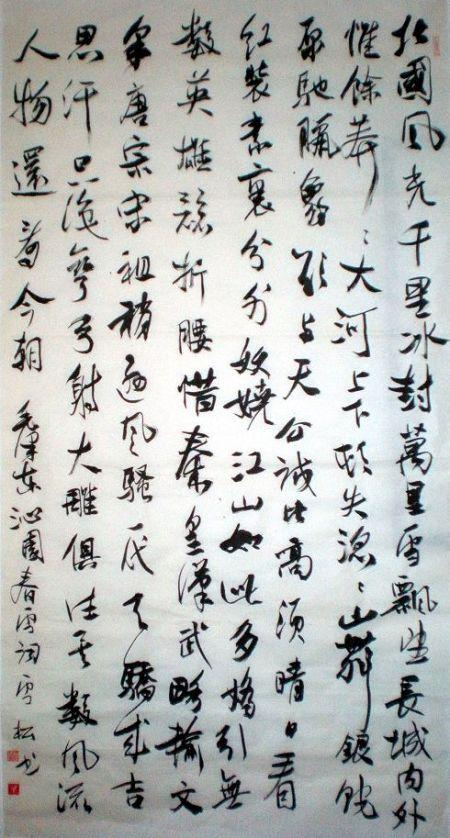 北國风光千里冰封萬里雪飄望長城内外
惟餘莽〻大河上下頓失滔〻山舞銀蛇
原馳臘象欲与天公試比高須晴日看
红裝素裹分外妖嬈江山如此多嬌引無
數英雄競折腰惜秦皇漢武略輸文
采唐宗宋祖稍遜风騷一代天驕成吉
思汗只識彎弓射大雕俱往矣數风流
人物還看今朝 毛澤东沁園春雪词雪松书